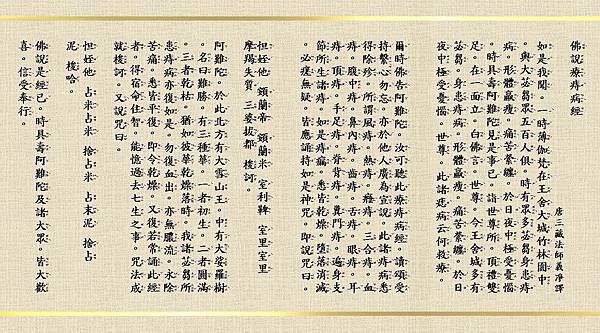 佛說療痔病經
唐三藏法師義淨譯
如是我聞。一時薄伽梵在王舍大城竹林園中
。與大苾芻眾五百人俱。時有眾多苾芻身患痔
病。形體羸瘦。痛苦縈纏。於日夜中極受憂惱
。時具壽阿難陀見是事已。詣世尊所。頂禮雙
足。在一面立。白佛言。世尊。今王舍城多有
苾芻。身患痔病。形體羸瘦。痛苦縈纏。於日
夜中極受憂惱。世尊。此諸痔病云何救療。
爾時佛告阿難陀。汝可聽此療痔病經。讀誦受
持繫心勿忘。亦於他人廣為宣說。此諸痔病悉
得除殄。所謂風痔。熱痔。癊痔。三合痔。血
痔。腹中痔。鼻內痔。齒痔。舌痔。眼痔。耳
痔。頂痔。手足痔。脊背痔。糞門痔。遍身支
節所生諸痔。如是痔瘻。悉皆乾燥。墮落消滅
。必瘥無疑。皆應誦持如是神咒。即說咒曰。
怛姪他 頞蘭帝 頞蘭米 室利鞞 室里室里
摩羯失質 三婆拔都 梭訶。
阿難陀。於此北方有大雪山王。中有大娑羅樹
。名曰難勝。有三種華。一者初生。二者圓滿
。三者乾枯。猶如彼華乾燥落時。我諸苾芻所
患痔病亦復如是。勿復血出。亦無膿流。永除
苦痛。悉皆平復。即令乾燥。又復若常誦此經
者。得宿命住智。能憶過去七生之事。咒法成
就梭訶。又說咒曰。
怛姪他 占米占米 捨占米 占末泥 捨占
泥 梭哈。
佛說是經已。時具壽阿難陀及諸大眾。皆大歡
喜。信受奉行。